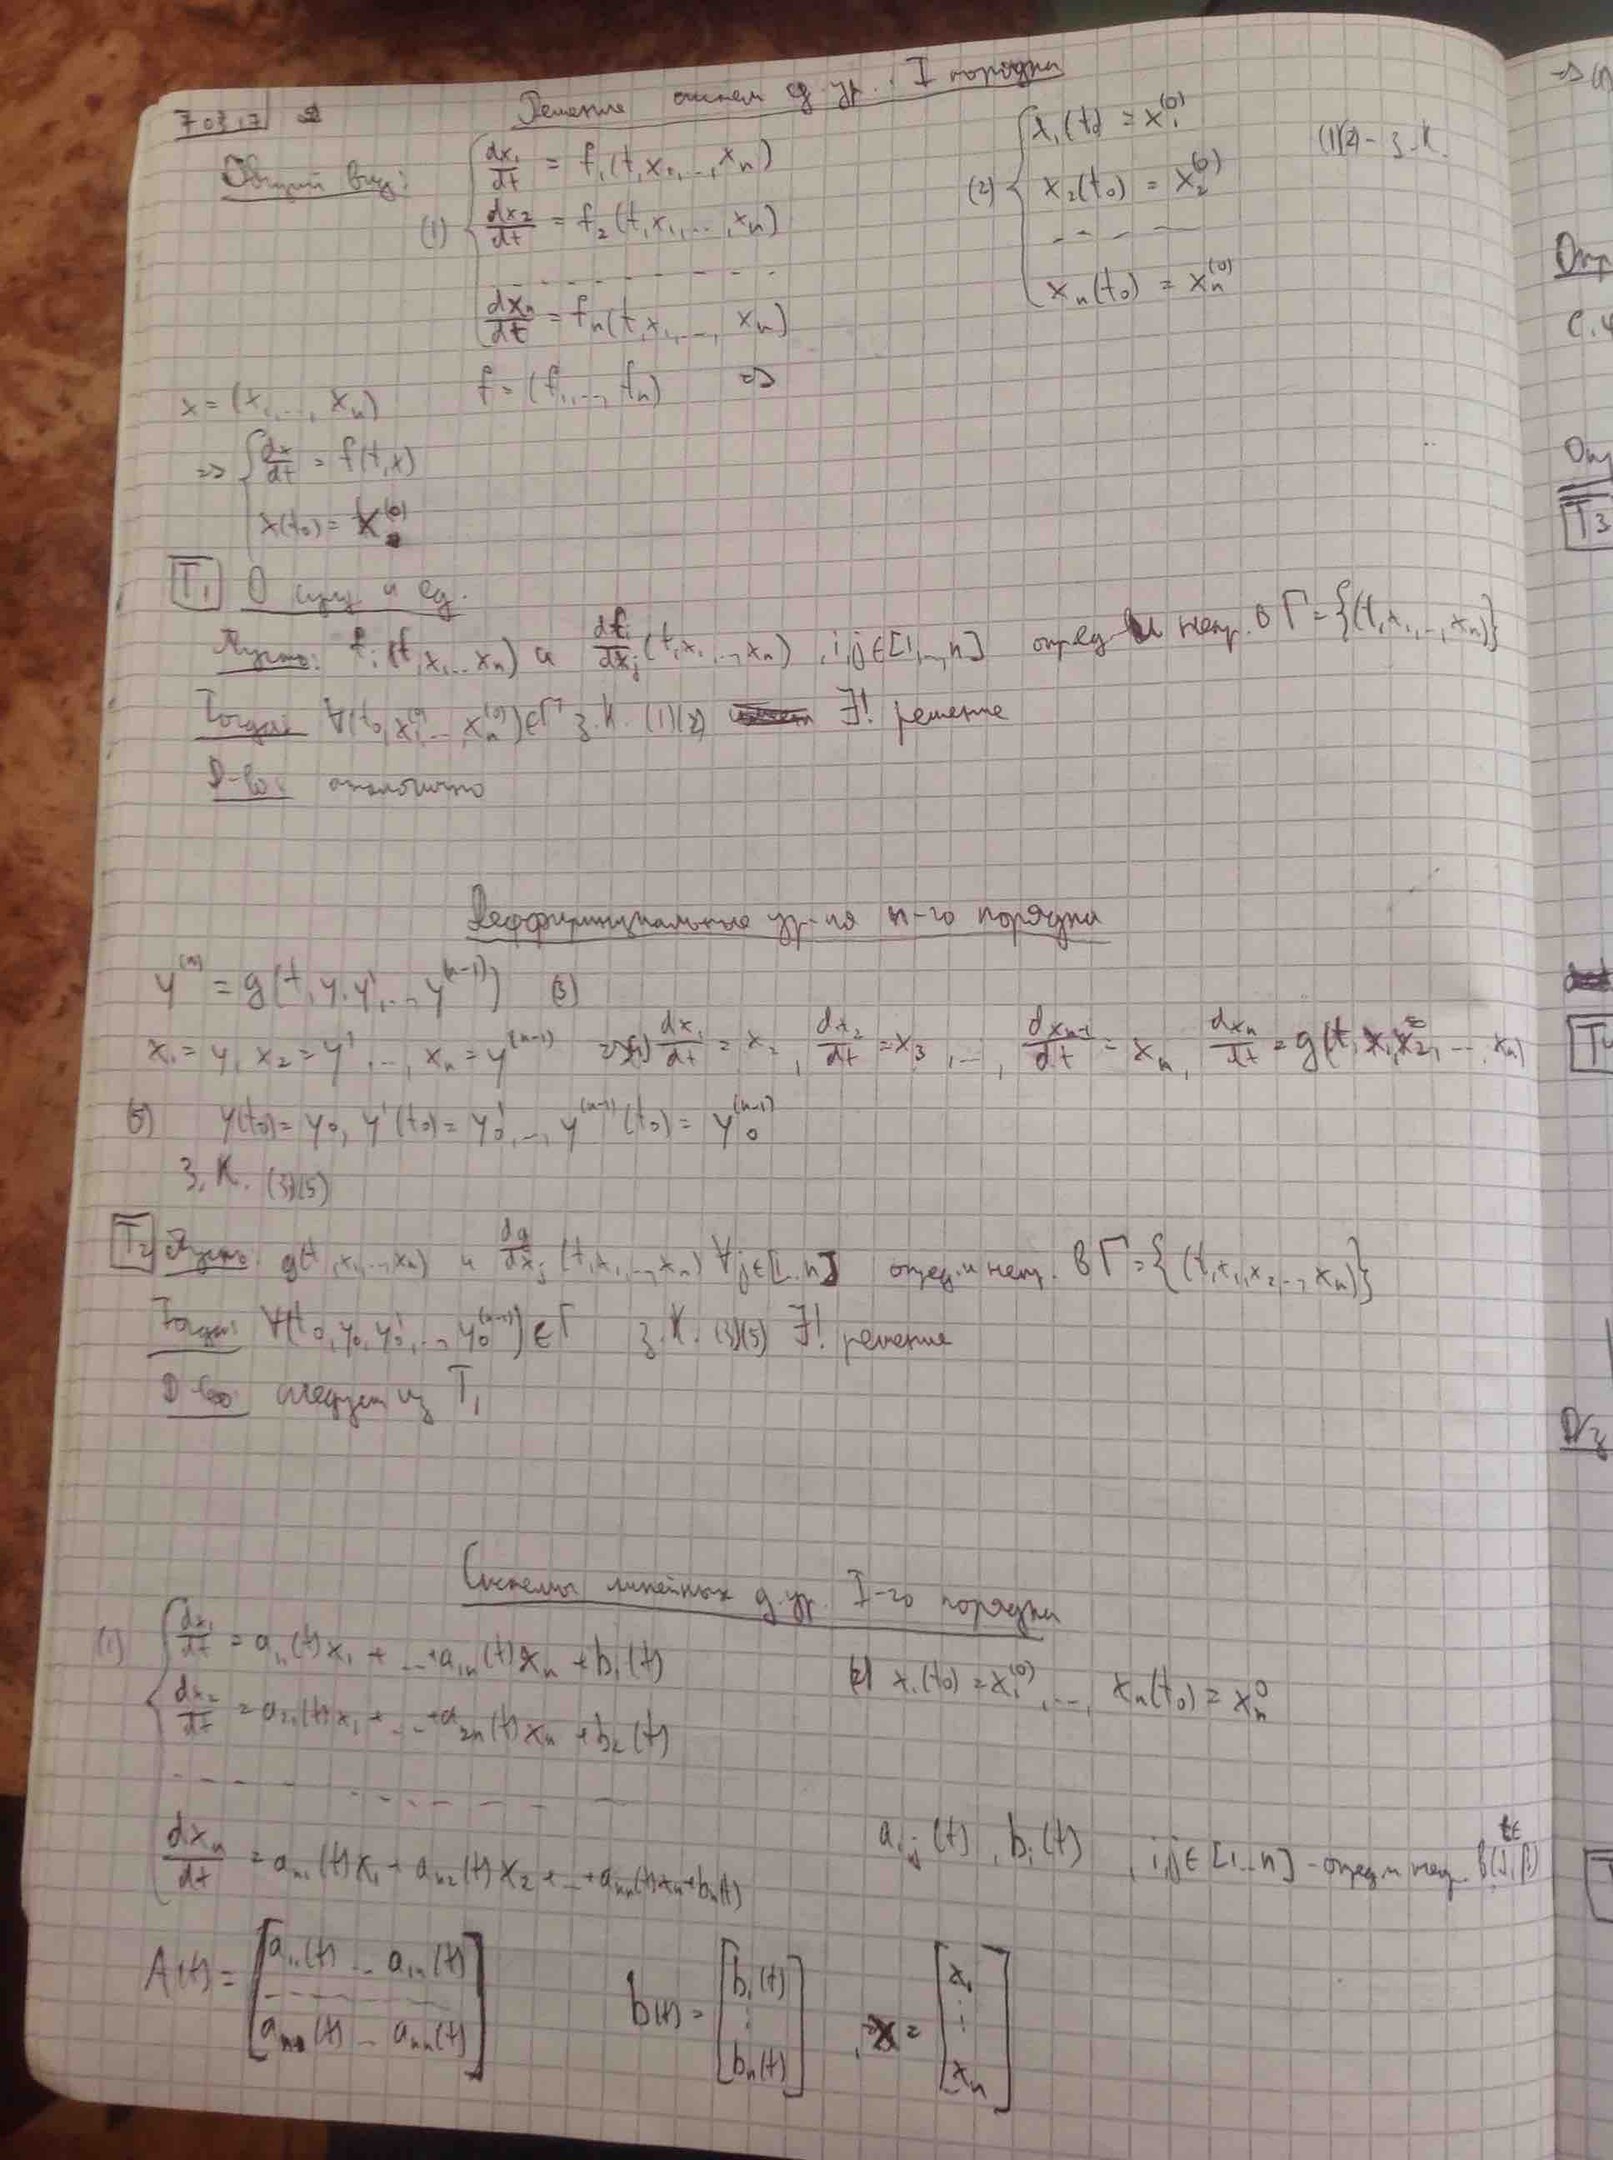 7.03.17
Решение систем д. ур. I порядка
Общий вид:
(1) { dx₁/dt = f₁(t, x₁, ..., xₙ)
dx₂/dt = f₂(t, x₁, ..., xₙ)
- - - - - - - - -
dxₙ/dt = fₙ(t, x₁, ..., xₙ)
(2) { x₁(t₀) = x₁⁽⁰⁾
x₂(t₀) = x₂⁽⁰⁾
- - - -
xₙ(t₀) = xₙ⁽⁰⁾
(1)(2) - з.К.
x = (x₁, ..., xₙ) f = (f₁, ..., fₙ) =>
=> { dx/dt = f(t, x)
x(t₀) = x⁽⁰⁾
T₁ О сущ. и ед.
Пусть: fᵢ(t, x₁...xₙ) и dfᵢ/dxⱼ (t, x₁, ..., xₙ), i,j∈[1,..,n] опред и непр. в Г = {(t, x₁, .., xₙ)}
Тогда: ∀(t₀, x₁⁽⁰⁾, ..., xₙ⁽⁰⁾)∈Г з.К. (1)(2) ∃! решение
Д-во: аналогично
Деффиринциальные ур-ия n-го порядка
y⁽ⁿ⁾ = g(t, y, y', .., y⁽ⁿ⁻¹⁾) (3)
x₁ = y, x₂ = y', .., xₙ = y⁽ⁿ⁻¹⁾ => (4) dx₁/dt = x₂, dx₂/dt = x₃, ..., dxₙ₋₁/dt = xₙ, dxₙ/dt = g(t, x₁, x₂, ..., xₙ)
(5) y(t₀) = y₀, y'(t₀) = y₀', .., y⁽ⁿ⁻¹⁾(t₀) = y₀⁽ⁿ⁻¹⁾
З.К. (3)(5)
T₂ Пусть: g(t, x₁, .., xₙ) и dg/dxⱼ (t, x₁, .., xₙ) ∀j∈[1..n] опред. и непр. в Г = {(t, x₁, x₂, .., xₙ)}
Тогда: ∀(t₀, y₀, y₀', .., y₀⁽ⁿ⁻¹⁾)∈Г з.К. (3)(5) ∃! решение
Д-во: следует из T₁
Системы линейных д.ур. I-го порядка
(1) { dx₁/dt = a₁₁(t)x₁ + ... + a₁ₙ(t)xₙ + b₁(t)
dx₂/dt = a₂₁(t)x₁ + ... + a₂ₙ(t)xₙ + b₂(t)
- - - - - - - - -
dxₙ/dt = aₙ₁(t)x₁ + aₙ₂(t)x₂ + ... + aₙₙ(t)xₙ + bₙ(t)
(2) x₁(t₀) = x₁⁽⁰⁾, ..., xₙ(t₀) = xₙ⁰
aᵢⱼ(t), bᵢ(t), i,j∈[1..n] - опред и непр. t∈ в (α, β)
A(t) = [a₁₁(t) ... a₁ₙ(t)
- - - - - -
aₙ₁(t) ... aₙₙ(t)]
b(t) = [b₁(t)
⋮
bₙ(t)]
, x = [x₁
⋮
xₙ]
Опр
T3
Д/з